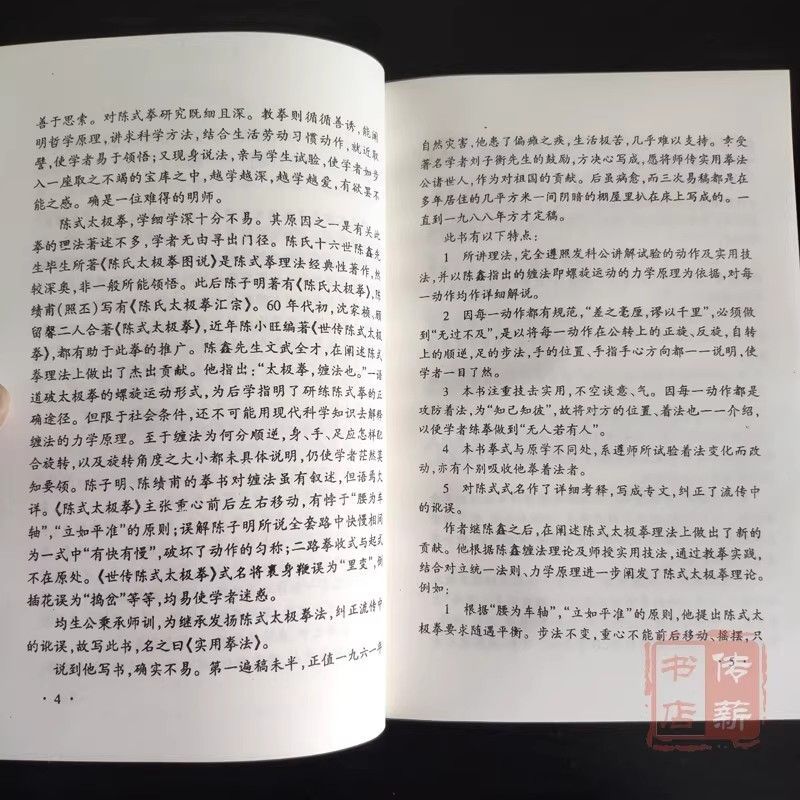 善于思索。对陈式拳研究既细且深。教拳则循循善诱,能阐
明哲学原理,讲求科学方法,结合生活劳动习惯动作,就近取
譬,使学者易于领悟;又现身说法,亲与学生试验,使学者如步
入一座取之不竭的宝库之中,越学越深,越学越爱,有欲罢不
能之感。确是一位难得的明师。
陈式太极拳,学细学深十分不易。其原因之一是有关此
拳的理法著述不多,学者无由寻出门径。陈氏十六世陈鑫先
生毕生所著《陈氏太极拳图说》是陈式拳理法经典性著作,然
较深奥,非一般所能领悟。此后陈子明著有《陈氏太极拳》,陈
绩甫(照丕)写有《陈氏太极拳汇宗》。60年代初,沈家桢、顾
留馨二人合著《陈式太极拳》,近年陈小旺编著《世传陈式太极
拳》,都有助于此拳的推广。陈鑫先生文武全才,在阐述陈式
拳理法上做出了杰出贡献。他指出:“太极拳,缠法也。”一语
道破太极拳的螺旋运动形式,为后学指明了研练陈式拳的正
确途径。但限于社会条件,还不可能用现代科学知识去解释
缠法的力学原理。至于缠法为何分顺逆,身、手、足应怎样配
合旋转,以及旋转角度之大小都未具体说明,仍使学者茫然莫
知要领。陈子明、陈绩甫的书拳对缠法虽有叙述,但语焉欠
详。《陈式太极拳》主张重心前后左右移动,有悖于“腰为车
轴”,“立如平准”的原则;误解陈子明所说全套路中快慢相间
为一式中“有快有慢”,破坏了动作的匀称;二路拳收式与起式
不在原处。《世传陈式太极拳》式名将裹身鞭误为“里变”,倒
插花误为“捣岔”等等,均易使学者迷惑。
均生公秉承师训,为继承发扬陈式太极拳法,纠正流传中
的讹误,故写此书,名之曰《实用拳法》。
说到他写书,确实不易。第一遍稿未半,正值一九六一年
·4·
自然灾害,他患了偏瘫之疾,生活极苦,几乎难以支持。幸受
著名学者刘子衡先生的鼓励,方决心写成,愿将师传实用拳法
公诸世人,作为对祖国的贡献。后虽病愈,而三次易稿都是在
多年居住的几乎方米一间阴暗的棚屋里扒在床上写成的。一
直到一九八八年方才定稿。
此书有以下特点:
1 所讲理法,完全遵照发科公讲解试验的动作及实用技
法,并以陈鑫指出的缠法即螺旋运动的力学原理为依据,对每
一动作均作详细解说。
2 因每一动作都有规范,“差之毫厘,谬以千里”,必须做
到“无过不及”,是以将每一动作在公转上的正旋、反旋,自转
上的顺逆,足的步法,手的位置、手指手心方向都一一说明,使
学者一目了然。
3 本书注重技击实用,不空谈意、气。因每一动作都是
攻防着法,为“知己知彼”,故将对方的位置、着法也一一介绍,
以便学者练拳做到“无人若有人”。
4 本书拳式与原学不同处,系遵师所试验着法变化而改
动,亦有个别吸收他拳着法者。
5 对陈式式名作了详细考释,写成专文,纠正了流传中
的讹误。
作者继陈鑫之后,在阐述陈式太极拳理法上做出了新的
贡献。他根据陈鑫缠法理论及师授实用技法,通过教拳实践,
结合对立统一法则、力学原理进一步阐发了陈式太极拳理论。
例如:
1 根据“腰为车轴”,“立如平准”的原则,他提出陈式太
极拳要求随遇平衡。步法不变,重心不能前后移动、摇摆;只
·5·
传薪
书店